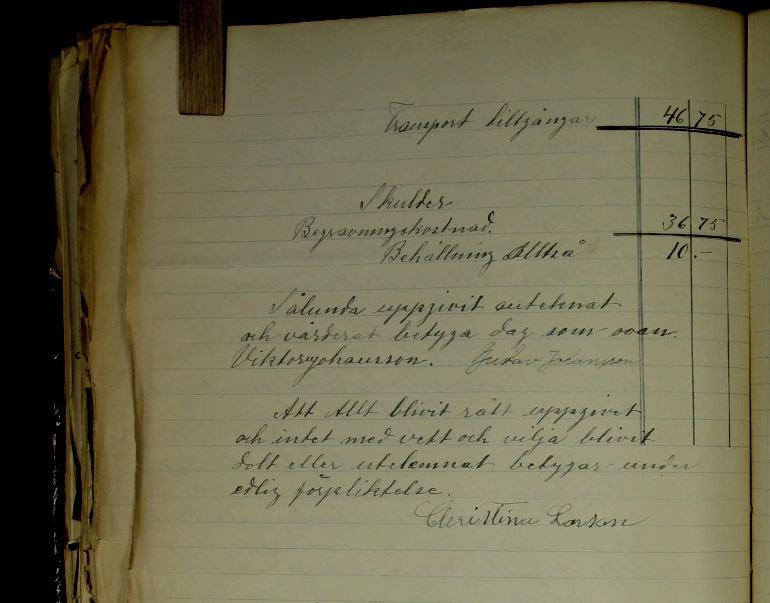 Transport tillgångar 46 75
Skulder
Begravningskostnad. 36 75
Behållning Alltså 10.-
Sålunda uppgivit anteknat
och värderat betyga dag som ovan.
Viktor Johansson. Gustav Johansson
Att Allt blivit rätt uppgivet
och intet med vett och vilja blivit
dolt eller utelemnat betygar under
edlig förpliktelse.
Christina Larson